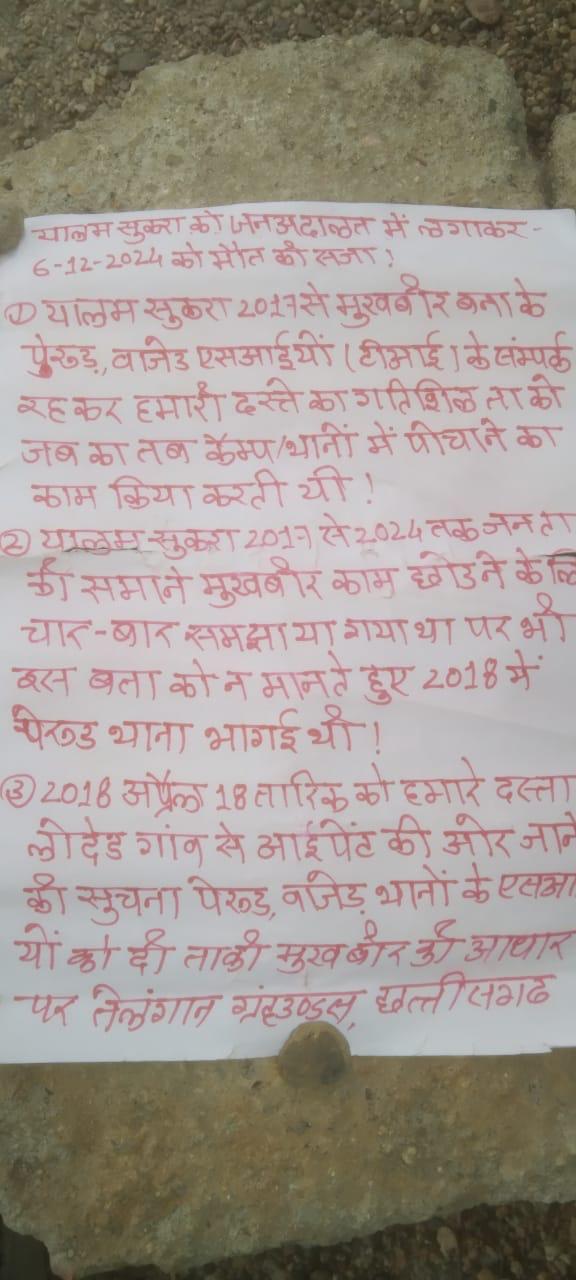 यालम सुकरा को जनअदालत में लगाकर -
6-12-2024 को मौत की सजा !
① यालम सुकरा 2017 से मुखबीर बना के
पेरूड, वाजेड एसआईयों (टीआई) के संम्पर्क
रहकर हमारी दस्ते का गतिशिलता को
जब का तब कैम्प/थानों में पीचाने का
काम किया करती थी !
② यालम सुकरा 2017 से 2024 तक जनता
की समाने मुखबीर काम छोडने के लि
चार-बार समझाया गया था पर भी
इस बता को न मानते हुए 2018 में
पेरूड थाना भागई थी !
③ 2018 अप्रैल 18 तारिक को हमारे दस्ता
लोदेड गांव से आईपेंट की ओर जाने
की सुचना पेरूड, वाजेड़ थानों के एसआ
यों को दी ताकी मुखबीर की आधार
पर तेलंगान ग्रंहउण्डस, छत्तीसगढ